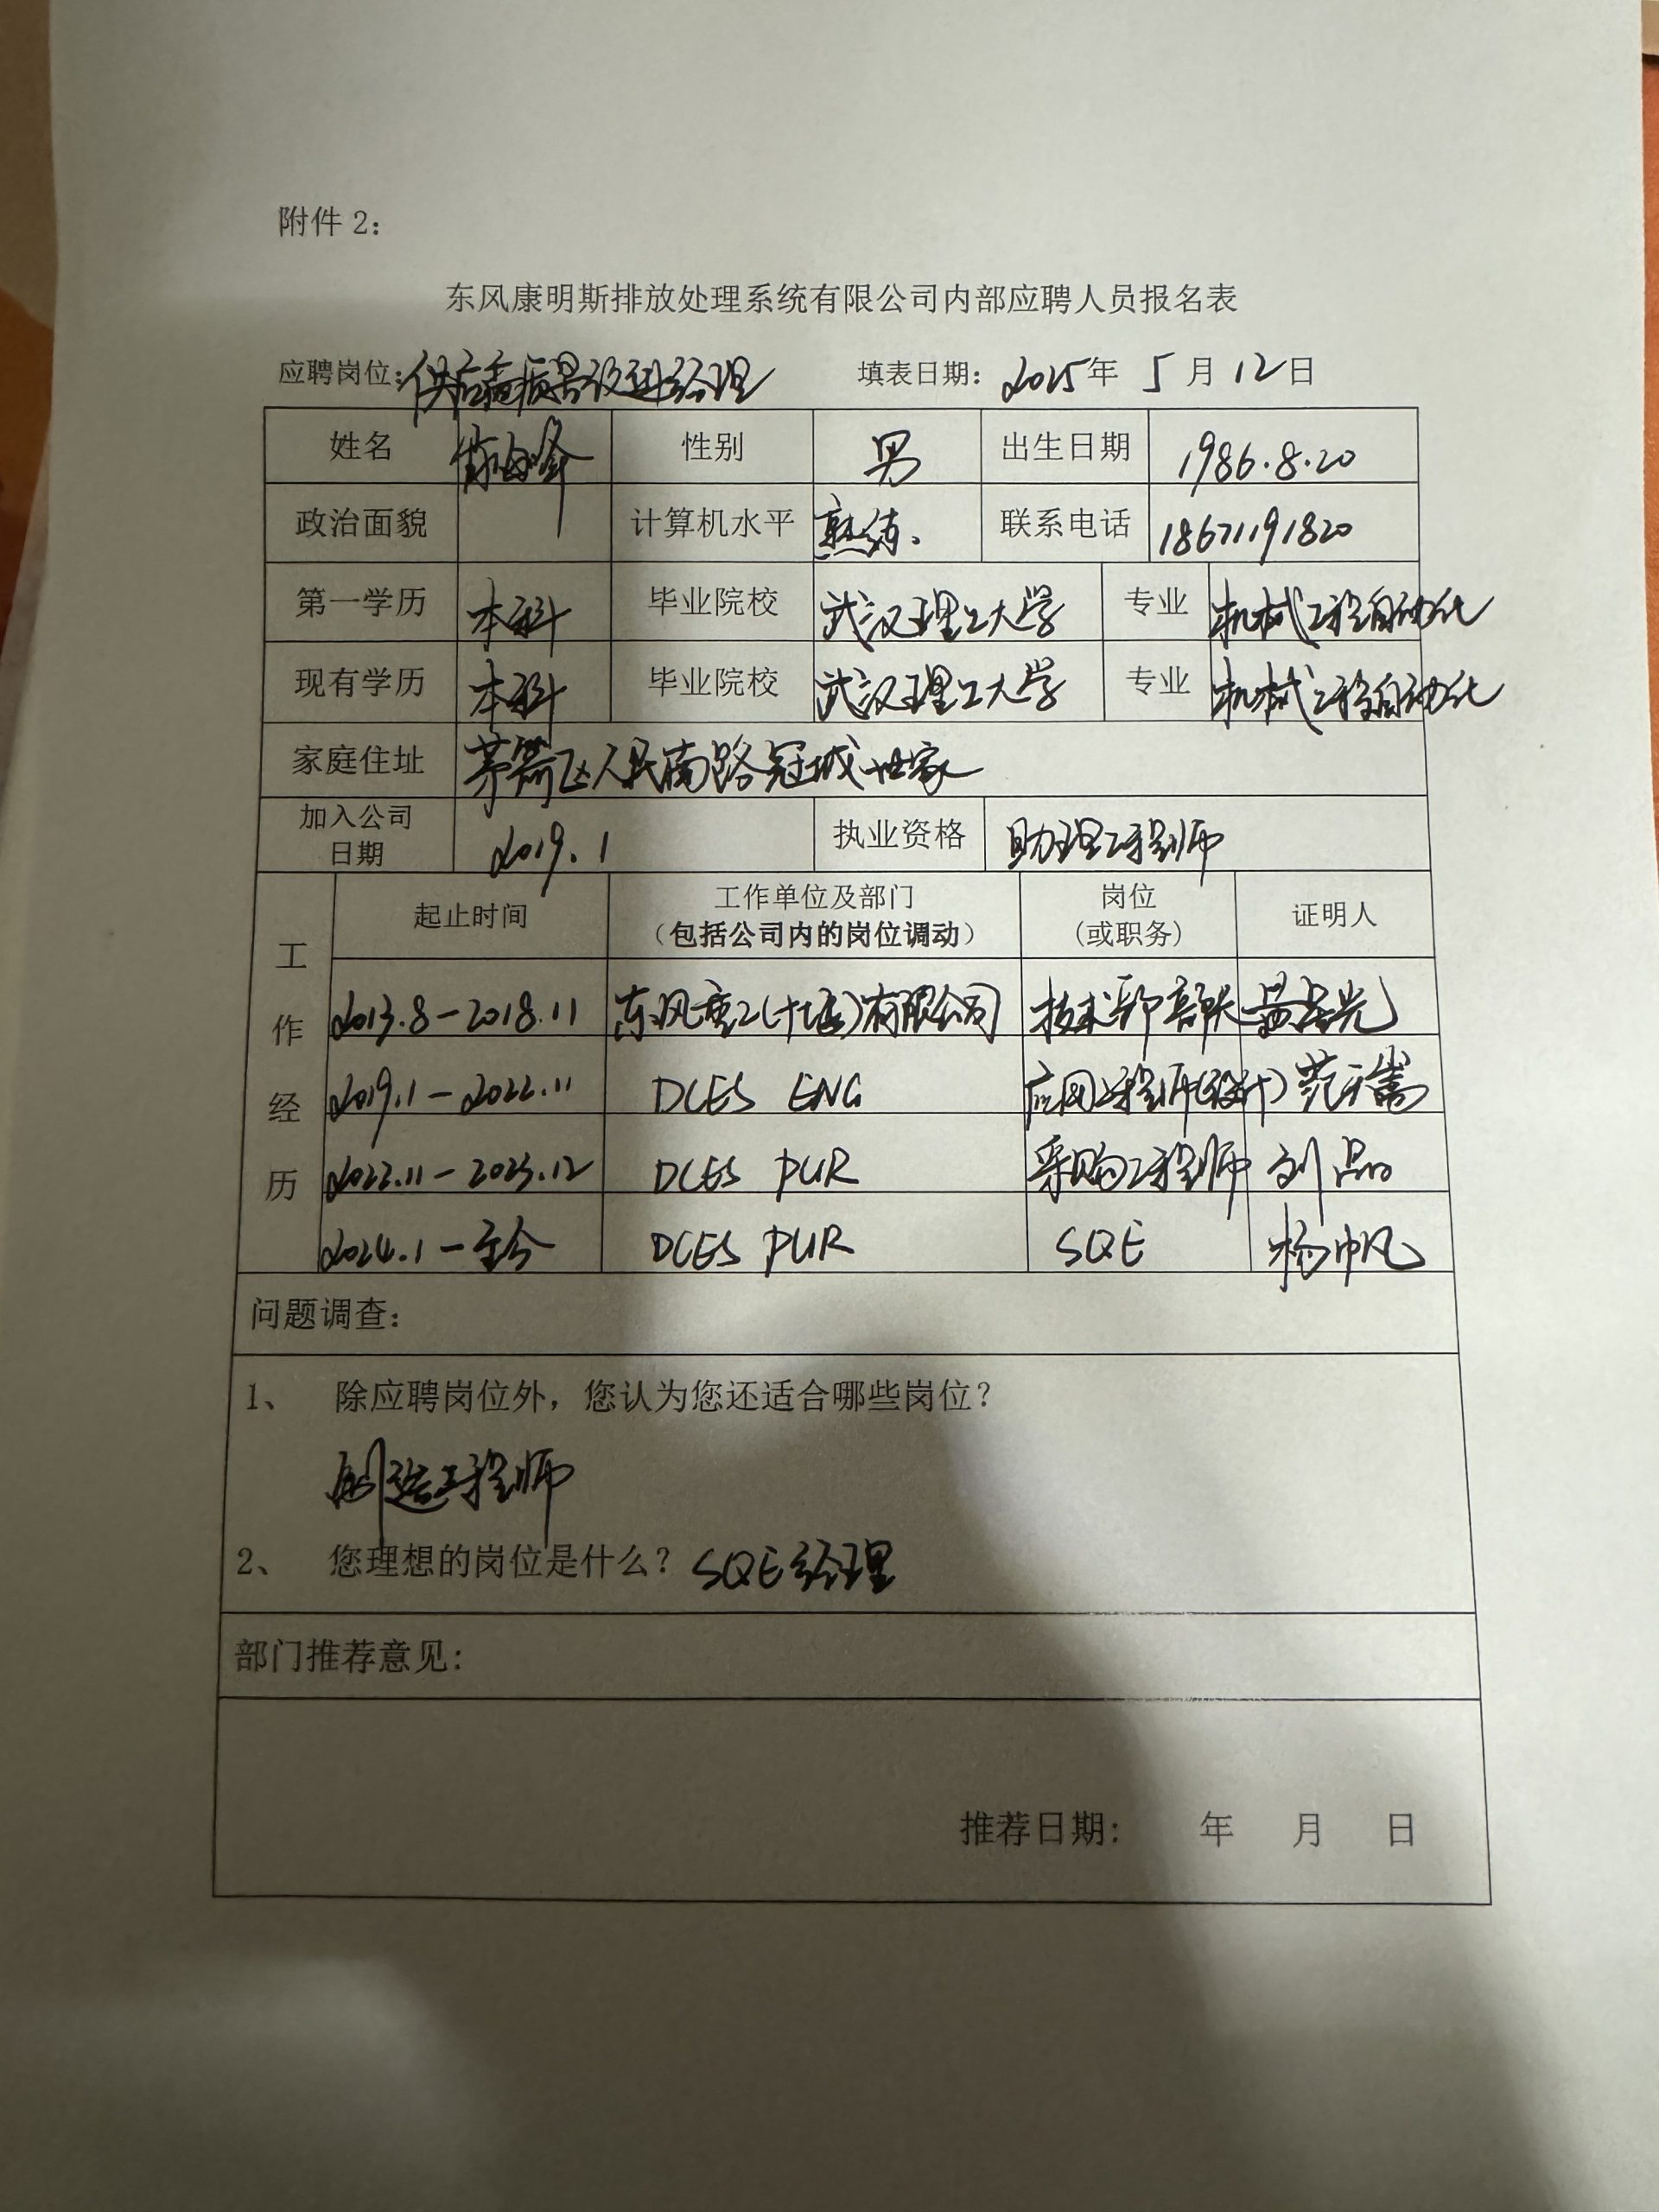 附件 2：
东风康明斯排放处理系统有限公司内部应聘人员报名表
应聘岗位：供应商质量改进经理 填表日期： 2025年 5 月 12日
姓名 性别 男 出生日期 1986.8.20
政治面貌 计算机水平 熟练. 联系电话 18671191820
第一学历 本科 毕业院校 武汉理工大学 专业 机械工程自动化
现有学历 本科 毕业院校 武汉理工大学 专业 机械工程自动化
家庭住址 茅箭区人民南路冠城世家
加入公司日期 2019.1 执业资格 助理工程师
工作经历
起止时间 工作单位及部门（包括公司内的岗位调动） 岗位(或职务) 证明人
2013.8-2018.11 东风重工(十堰)有限公司 技术部 部长
2019.1-2022.11 DCES ENG 应用工程师(设计)
2022.11-2023.12 DCES PUR 采购工程师
2024.1-至今 DCES PUR SQE 杨帆
问题调查：
1、 除应聘岗位外，您认为您还适合哪些岗位？
制造工程师
2、 您理想的岗位是什么？ SQE经理
部门推荐意见：
推荐日期： 年 月 日